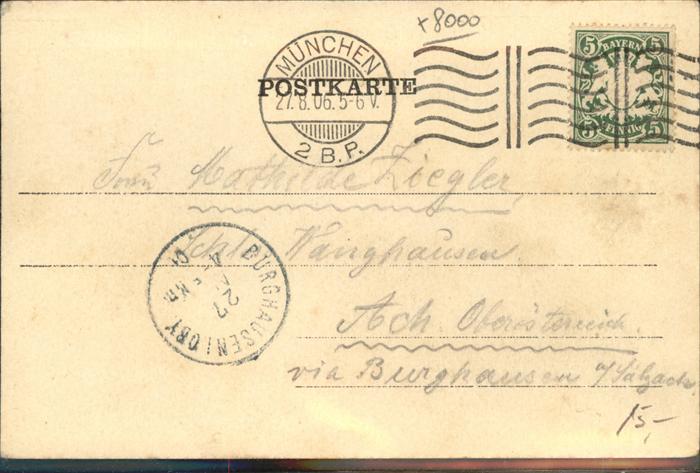 ×8000
5 BAYERN 5
MÜNCHEN
POSTKARTE
27.8.06.5-6 V.
5 PFENNIG 5
2 B.P.
Frau Mathilde Ziegler
Schloß Wanghausen.
BURGHAUSEN(OBY.
27
Ach. Oberösterreich.
via Burghausen a/Salzach
15,-